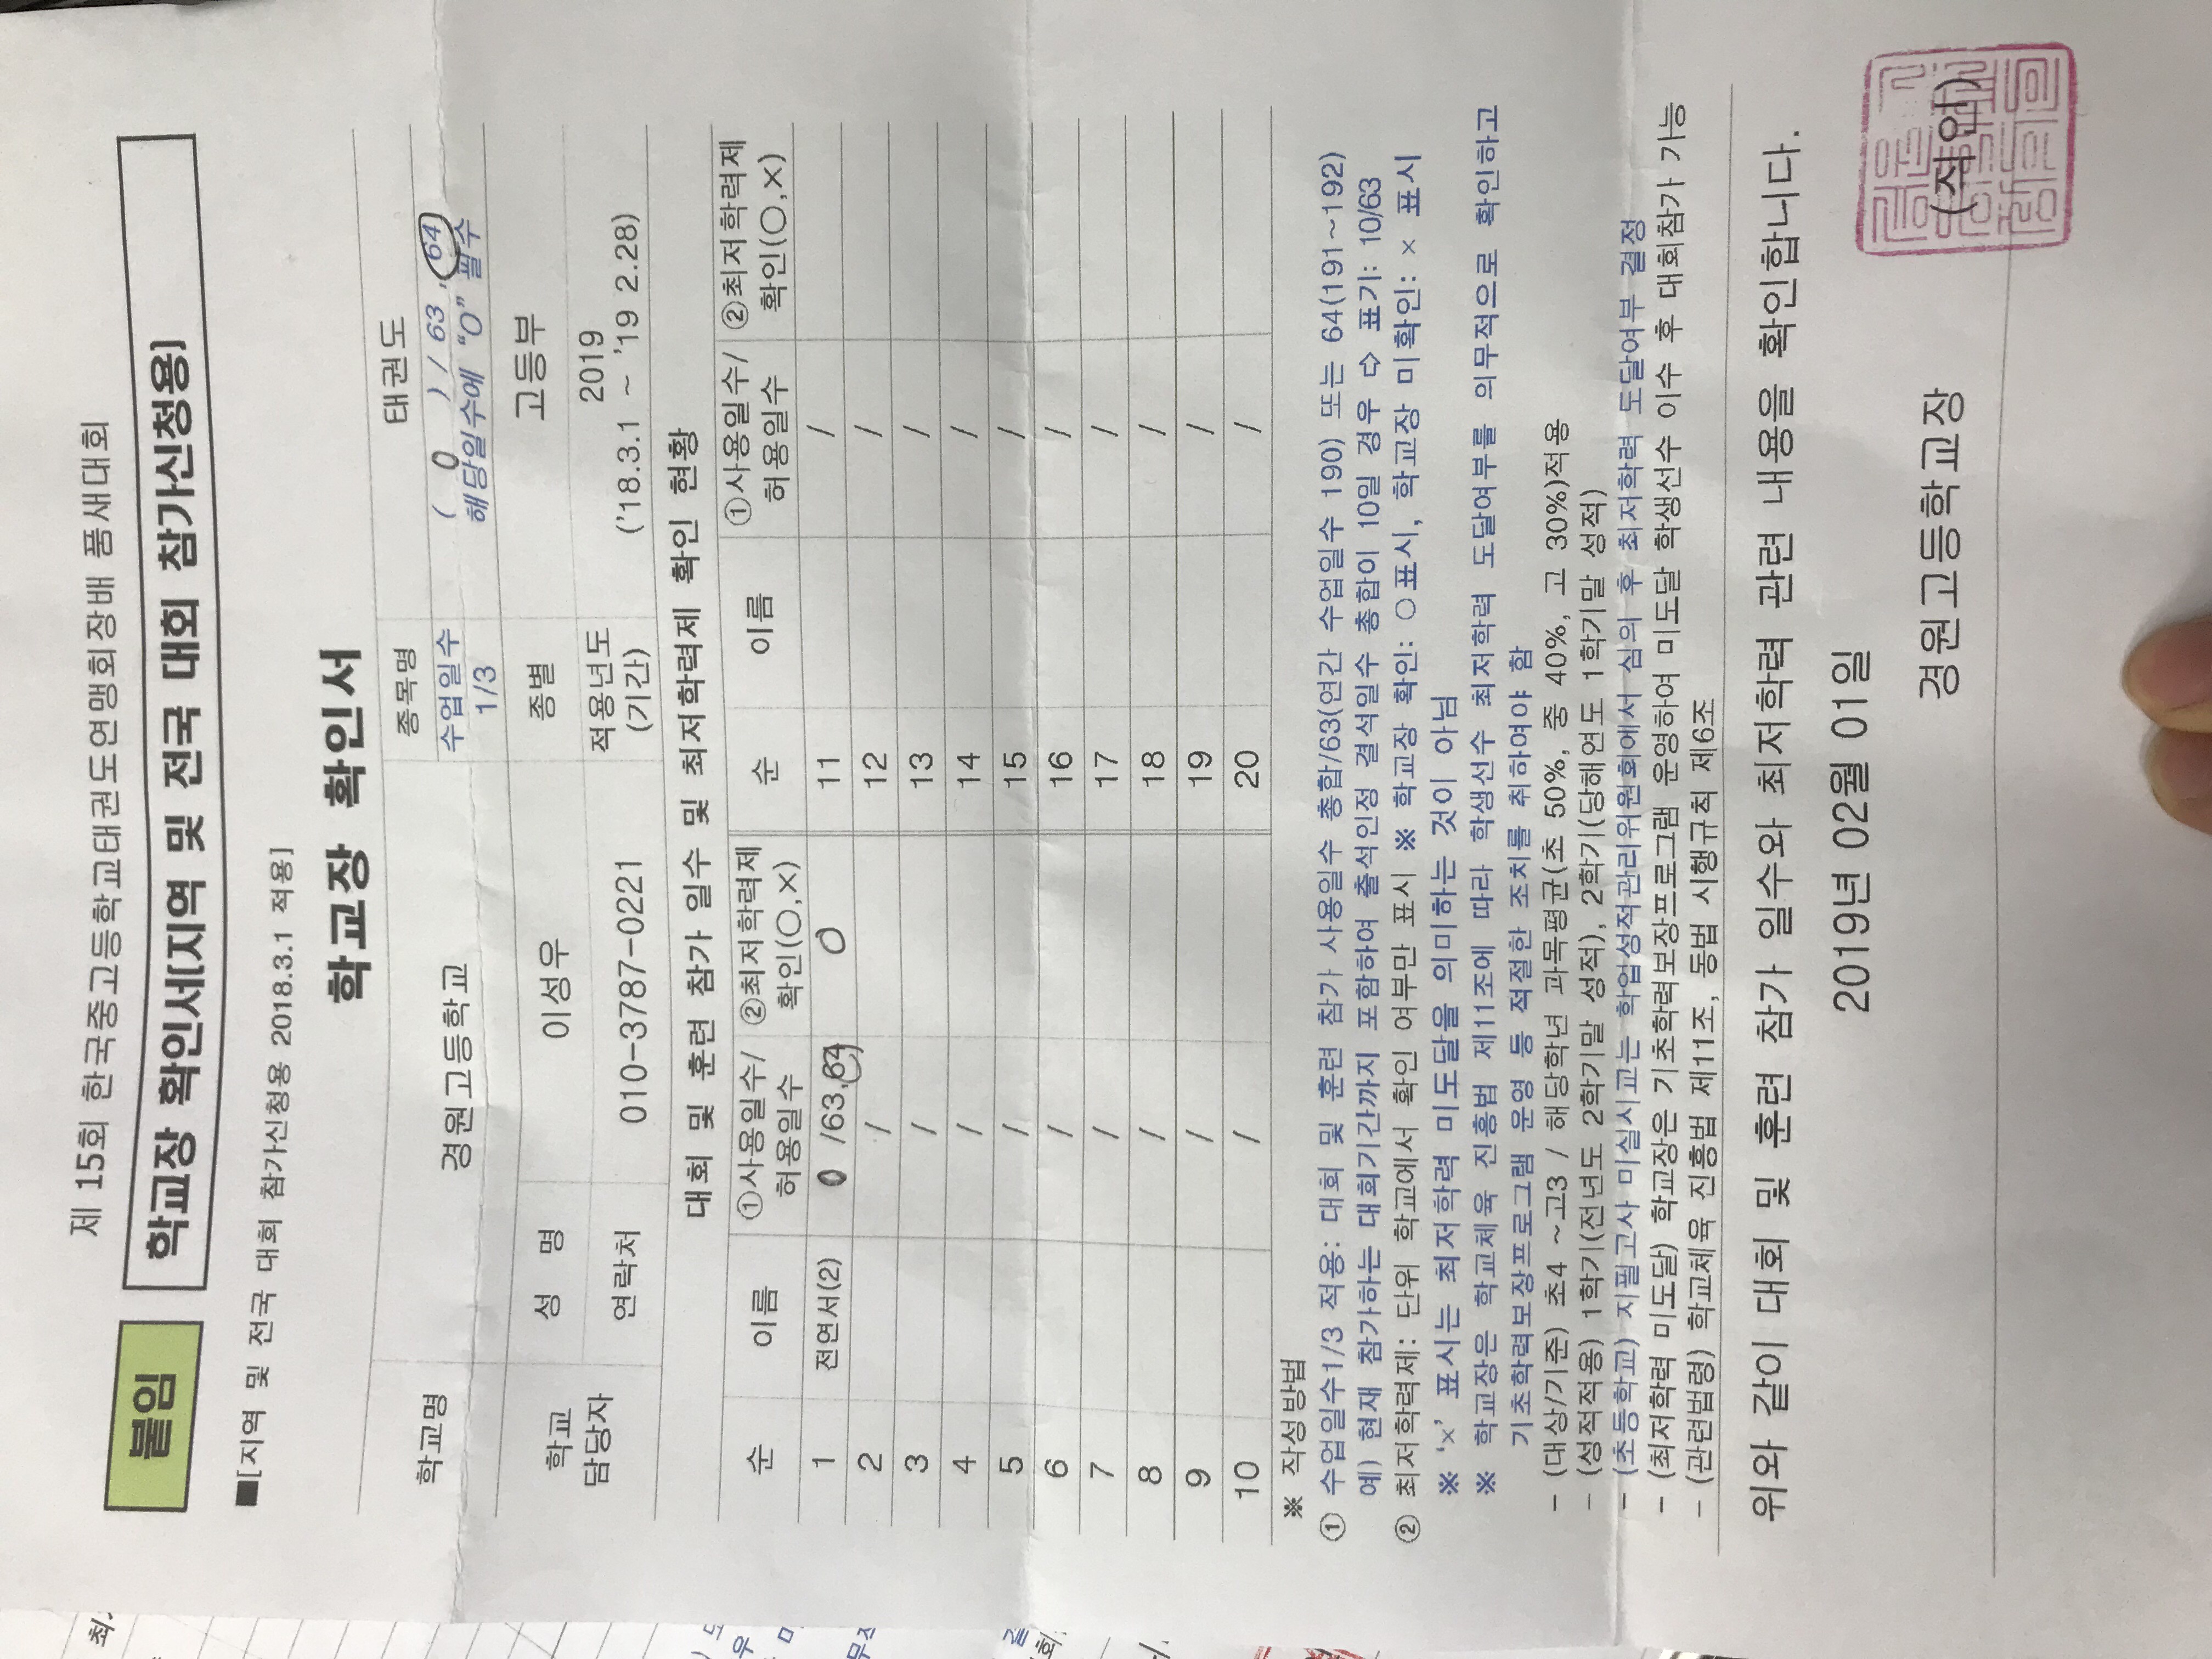 제 15회 한국중고등학교태권도연맹회장배 품새대회
붙임
학교장 확인서[지역 및 전국 대회 참가신청용]
■[지역 및 전국 대회 참가신청용 2018.3.1 적용]
학교장 확인서
학교명 경원고등학교 종목명 태권도
수업일수 1/3 ( 0 ) / 63 , 64
해당일수에 "O" 필수
학교 담당자 성 명 이성우 종별 고등부
연락처 010-3787-0221 적용년도 (기간) 2019
('18.3.1 ~ '19 2.28)
대회 및 훈련 참가 일수 및 최저학력제 확인 현황
순 이름 ①사용일수/허용일수 ②최저학력제 확인(○,×) 순 이름 ①사용일수/허용일수 ②최저학력제 확인(○,×)
1 전연서(2) 0 /63,64 O 11 /
2 / 12 /
3 / 13 /
4 / 14 /
5 / 15 /
6 / 16 /
7 / 17 /
8 / 18 /
9 / 19 /
10 / 20 /
※ 작성방법
① 수업일수1/3 적용: 대회 및 훈련 참가 사용일수 총합/63(연간 수업일수 190) 또는 64(191~192)
예) 현재 참가하는 대회기간까지 포함하여 출석인정 결석일수 총합이 10일 경우 ⇨ 표기: 10/63
② 최저학력제: 단위 학교에서 확인 여부만 표시 ※ 학교장 확인: ○표시, 학교장 미확인: × 표시
※ '×' 표시는 최저학력 미도달을 의미하는 것이 아님
※ 학교장은 학교체육 진흥법 제11조에 따라 학생선수 최저학력 도달여부를 의무적으로 확인하고
기초학력보장프로그램 운영 등 적절한 조치를 취하여야 함
- (대상/기준) 초4 ~고3 / 해당학년 과목평균(초 50%, 중 40%, 고 30%)적용
- (성적적용) 1학기(전년도 2학기말 성적), 2학기(당해연도 1학기말 성적)
- (초등학교) 지필고사 미실시교는 학업성적관리위원회에서 심의 후 최저학력 도달여부 결정
- (최저학력 미도달) 학교장은 기초학력보장프로그램 운영하여 미도달 학생선수 이수 후 대회참가 가능
- (관련법령) 학교체육 진흥법 제11조, 동법 시행규칙 제6조
위와 같이 대회 및 훈련 참가 일수와 최저학력 관련 내용을 확인합니다.
2019년 02월 01일
경원고등학교장 (직인)